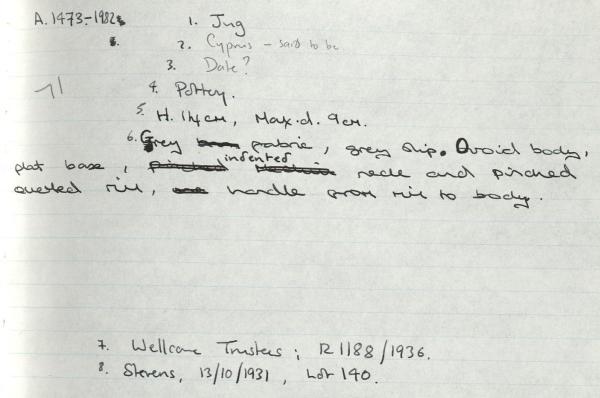 A.1473-1982 1. Jug
2. Cyprus - said to be
3. Date?
4. Pottery.
5. H. 14cm, Max.d. 9cm.
6. Grey fabric, grey slip. Ovoid body,
flat base, indented neck and pinched
everted rim, handle from rim to body.
7. Wellcome Trustees; R1188/1936.
8. Stevens, 13/10/1931, Lot 140.